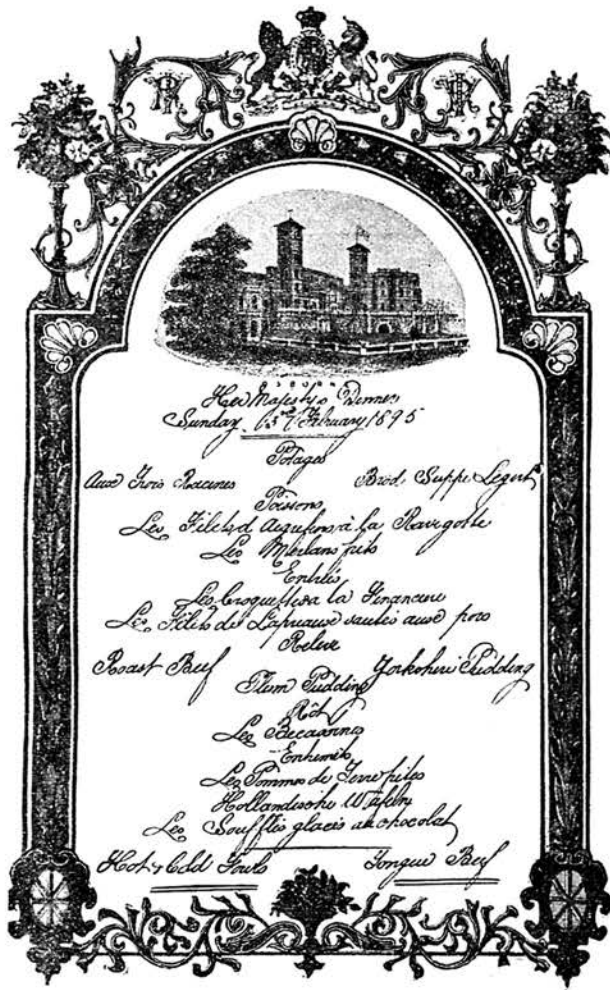 OSBORNE
Her Majesty's Dinner
Sunday 3rd February 1895
Potages
Aux Trois Racines Brod Suppe Legirt
Poissons
Les Filets d'Aigrefins à la Ravigotte
Les Merlans frits
Entrées
Les Croquettes à la Financière
Les Filets de Lapreaux sautés aux pois
Releve
Roast Beef Yorkshire Pudding
Plum Pudding
Rôt
Les Becassines
Entremêts
Les Pommes de Terre frites
Hollandische Waffeln
Les Soufflés glacés au chocolat
Hot & Cold Fowls Tongue Beef